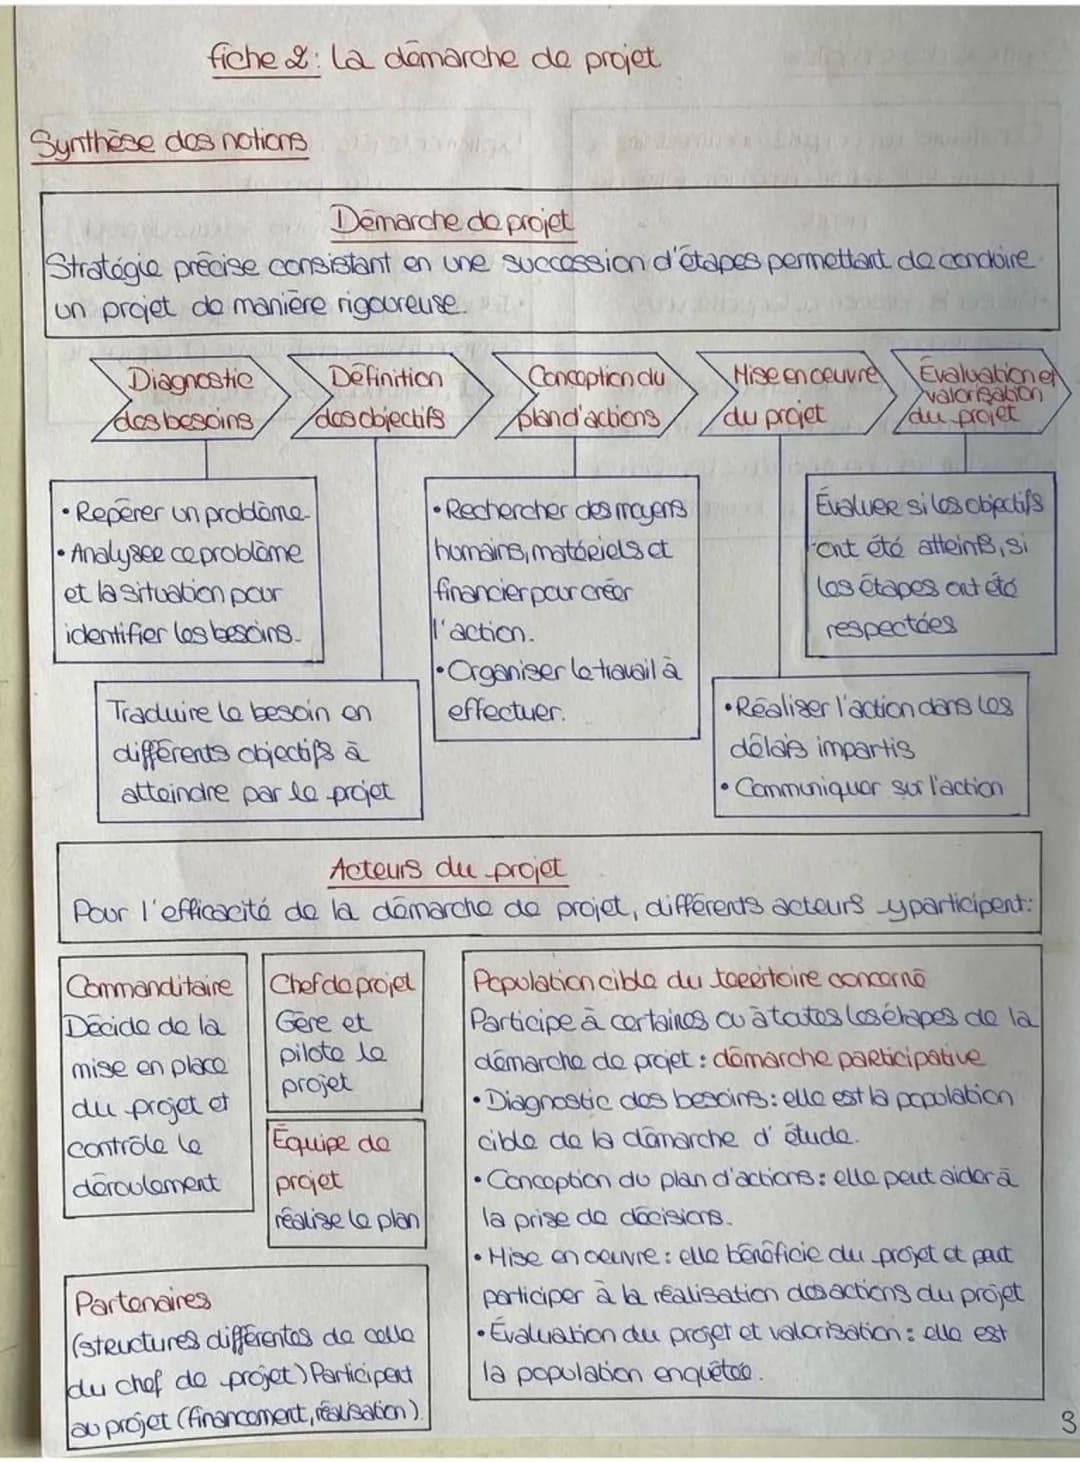 fiche 2: La démarche de projet
Synthèse des notions
Démarche de projet
Stratégie précise consistant en une succession d'étapes permettant de conduire
un projet de manière rigoureuse.
Diagnostic
des besoins
Définition
des objectifs
Conception du
plan d'actions
Mise en oeuvre
du projet
Évaluation et
valorisation
du projet
• Repérer un problème
• Analyser ce problème
et la situation pour
identifier les besoins.
Traduire le besoin en
différents objectifs à
atteindre par le projet
• Rechercher des moyens
humains, matériels et
financier pour créer
l'action.
• Organiser le travail à
effectuer.
• Réaliser l'action dans les
délais impartis
• Communiquer sur l'action
Évaluer si les objectifs
ont été atteints, si
les étapes ont été
respectées
Acteurs du projet
Pour l'efficacité de la démarche de projet, différents acteurs y participent:
Commanditaire
Décide de la
mise en place
du projet et
contrôle le
déroulement
Chef de projet
Gère et
pilote le
projet
Équipe de
projet
réalise le plan
Partenaires
(structures différentes de celle
du chef de projet) Participent
au projet (financement, réalisation).
Population cible du territoire concerné
Participe à certaines ou à toutes les étapes de la
démarche de projet : démarche participative
• Diagnostic des besoins : elle est la population
cible de la démarche d'étude.
• Conception du plan d'actions : elle peut aider à
la prise de décisions.
• Mise en oeuvre : elle bénéficie du projet et peut
participer à la réalisation des actions du projet
• Évaluation du projet et valorisation : elle est
la population enquêtée.
3